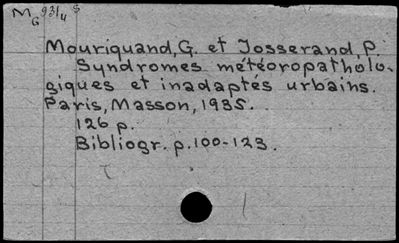 MG 93/4 S
Mouriquand, G. et Josserand, P.
Syndromes météoropatholo-
giques et inadaptés urbains.
Paris, Masson, 1935.
126 p.
Bibliogr. p. 100-123.